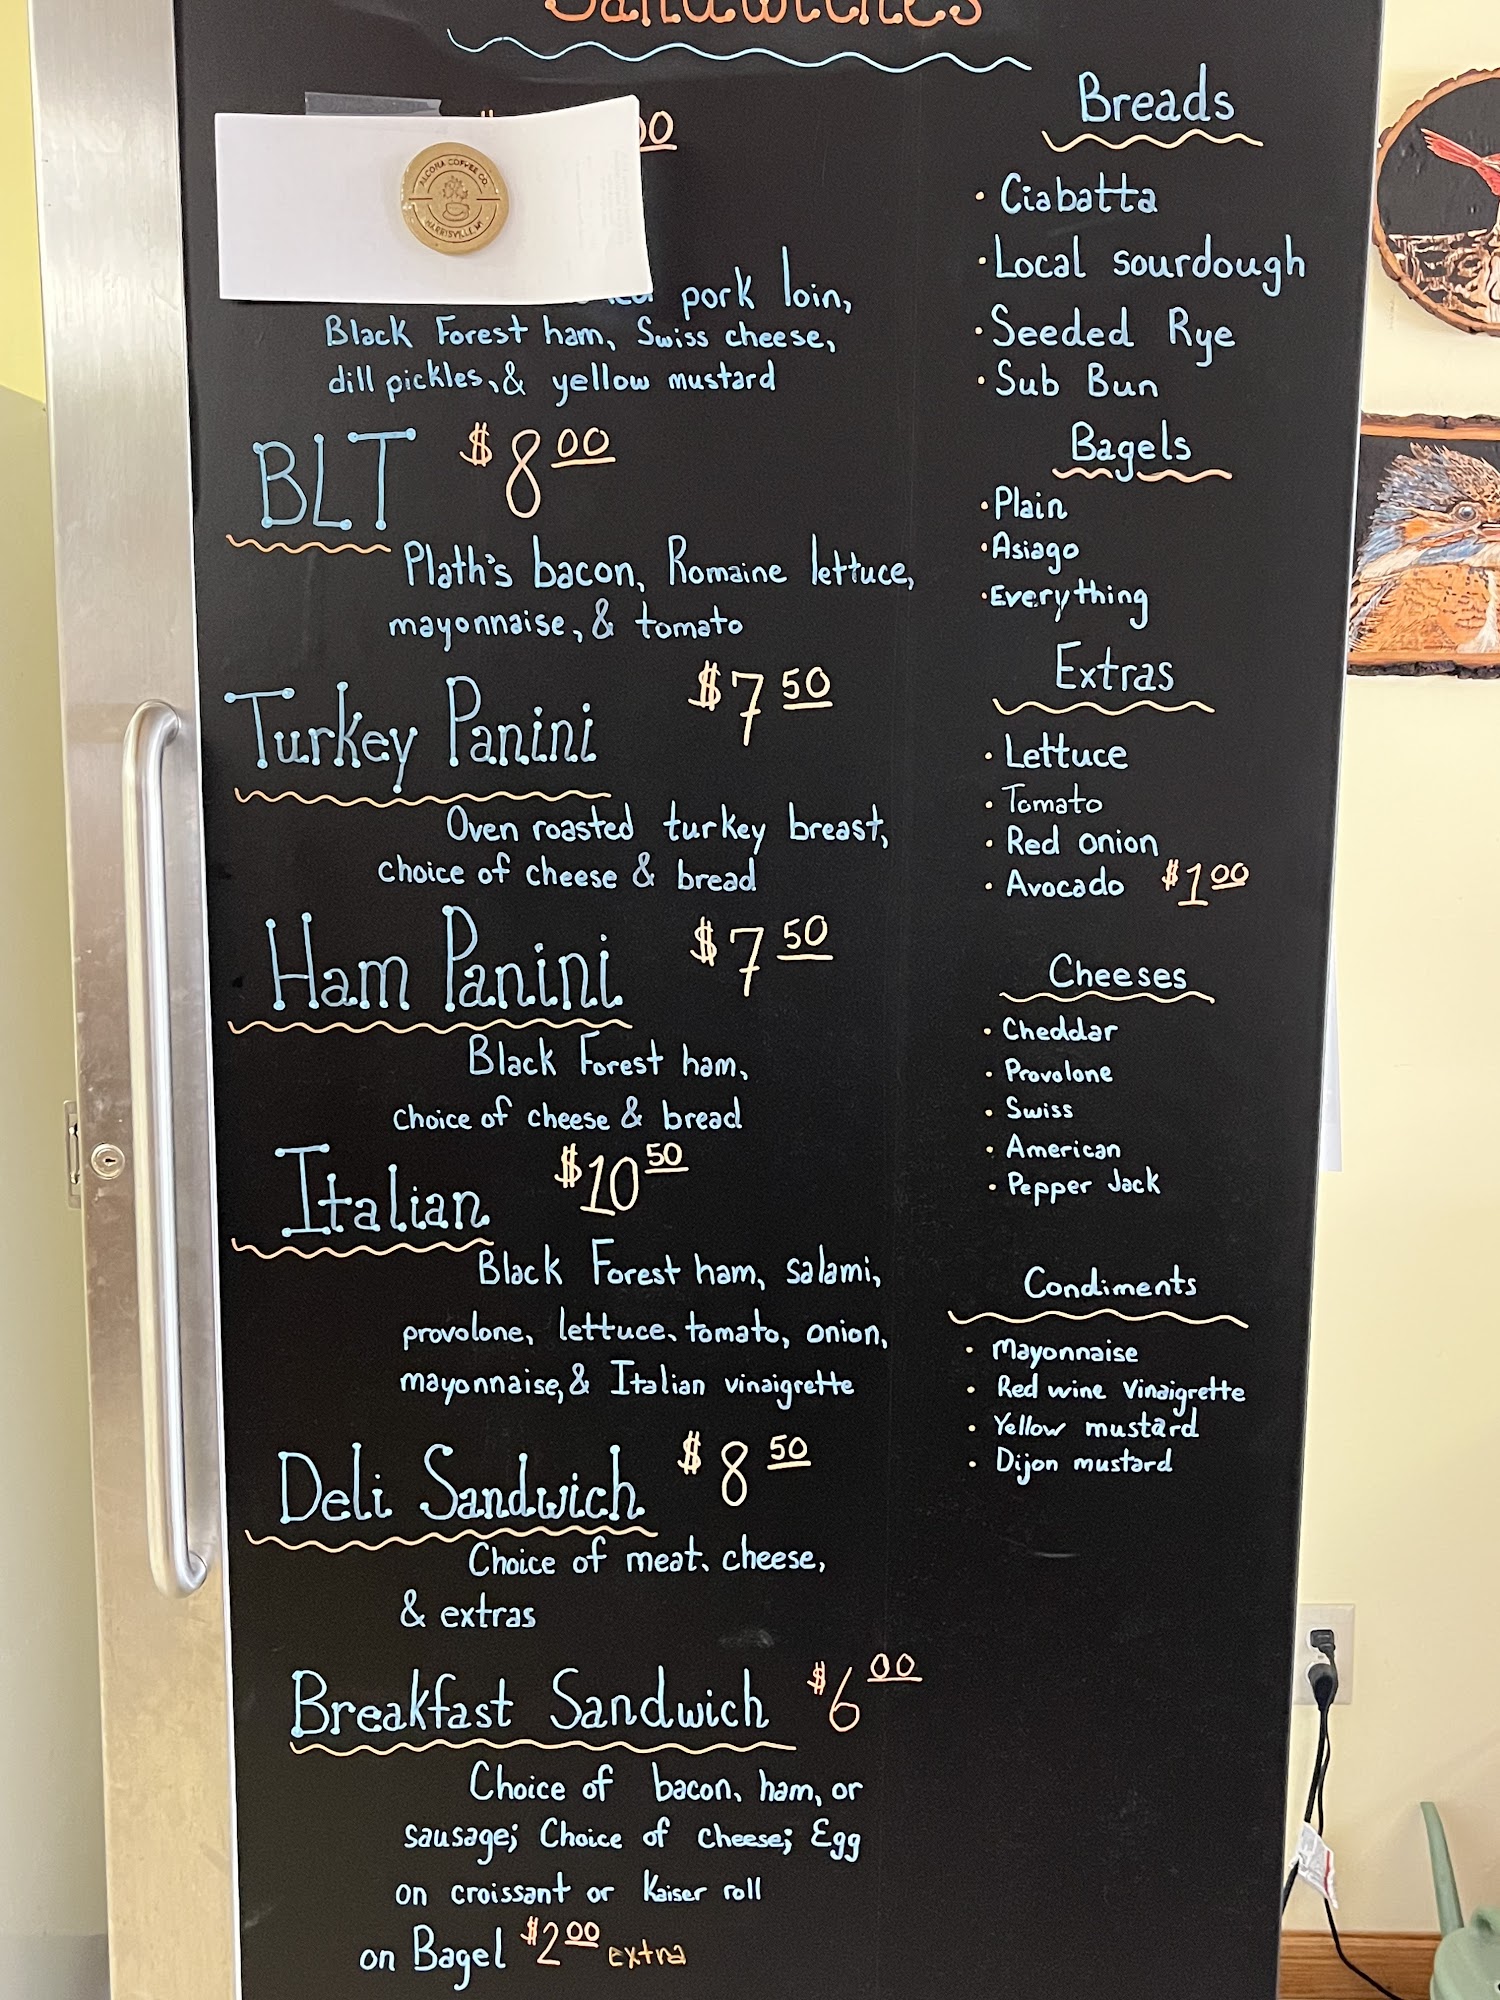 Sandwiches
ALCONA COFFEE CO.
HARRISVILLE, MI
pork loin,
Black Forest ham, Swiss cheese,
dill pickles, & yellow mustard
BLT $8.00
Plath's bacon, Romaine lettuce,
mayonnaise, & tomato
Turkey Panini $7.50
Oven roasted turkey breast,
choice of cheese & bread
Ham Panini $7.50
Black Forest ham,
choice of cheese & bread
Italian $10.50
Black Forest ham, salami,
provolone, lettuce, tomato, onion,
mayonnaise, & Italian vinaigrette
Deli Sandwich $8.50
Choice of meat, cheese,
& extras
Breakfast Sandwich $6.00
Choice of bacon, ham, or
sausage; Choice of cheese; Egg
on croissant or Kaiser roll
on Bagel $2.00 extra
Breads
· Ciabatta
· Local sourdough
· Seeded Rye
· Sub Bun
Bagels
· Plain
· Asiago
· Everything
Extras
· Lettuce
· Tomato
· Red onion
· Avocado $1.00
Cheeses
· Cheddar
· Provolone
· Swiss
· American
· Pepper Jack
Condiments
· Mayonnaise
· Red wine Vinaigrette
· Yellow mustard
· Dijon mustard